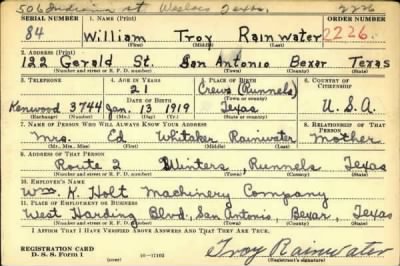 506 Indiana st Weslaco Texas. 2226
SERIAL NUMBER 1. NAME (Print) ORDER NUMBER
84 William Troy Rainwater 2226
(First) (Middle) (Last)
2. ADDRESS (Print)
122 Gerald St. San Antonio Bexar Texas
(Number and street or R. F. D. number) (Town) (County) (State)
3. TELEPHONE 4. AGE IN YEARS 5. PLACE OF BIRTH 6. COUNTRY OF CITIZENSHIP
21 Crews (Runnels)
DATE OF BIRTH (Town or county)
Kenwood 3744 Jan. 13 1919 Texas U.S.A.
(Exchange) (No.) (Mo.) (Day) (Yr.) (State or country)
7. NAME OF PERSON WHO WILL ALWAYS KNOW YOUR ADDRESS 8. RELATIONSHIP OF THAT PERSON
Mrs. Ed Whitaker Rainwater Mother
(Mr., Mrs., Miss) (First) (Middle) (Last)
9. ADDRESS OF THAT PERSON
Route 2 Winters, Runnels Texas
(Number and street or R. F. D. number) (Town) (County) (State)
10. EMPLOYER'S NAME
Wm. K. Holt Machinery Company
11. PLACE OF EMPLOYMENT OR BUSINESS
West Harding Blvd., San Antonio, Bexar, Texas
(Number and street or R. F. D. number) (Town) (County) (State)
I AFFIRM THAT I HAVE VERIFIED ABOVE ANSWERS AND THAT THEY ARE TRUE.
REGISTRATION CARD
D. S. S. Form 1
16—17105
Troy Rainwater
(Registrant's signature)